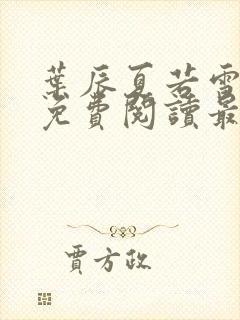 葉辰夏若雪
免費閱讀最
賈方政